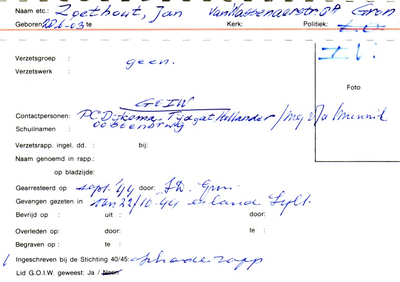 Naam etc.: Zoethout, Jan Van Wassenaerstr. Gron
Geboren 20-1-03 te Kerk: Politiek:
Verzetsgroep : geen.
Verzetswerk :
Foto
GOIW
Contactpersonen: PC Dijkema, Tijdgat Hollander/
Schuilnamen :
Verzetsrapp. ingel. dd. : bij:
Naam genoemd in rapp.:
op bladzijde:
Gearresteerd op sept. '44 door: S.D. Gron.
Gevangen gezeten in t/m 22/10-44 eiland Sylt.
Bevrijd op : uit : door:
Overleden op: door: te :
Begraven op : te :
Ingeschreven bij de Stichting 40/45: schaderapp
Lid G.O.I.W. geweest: Ja / Neen